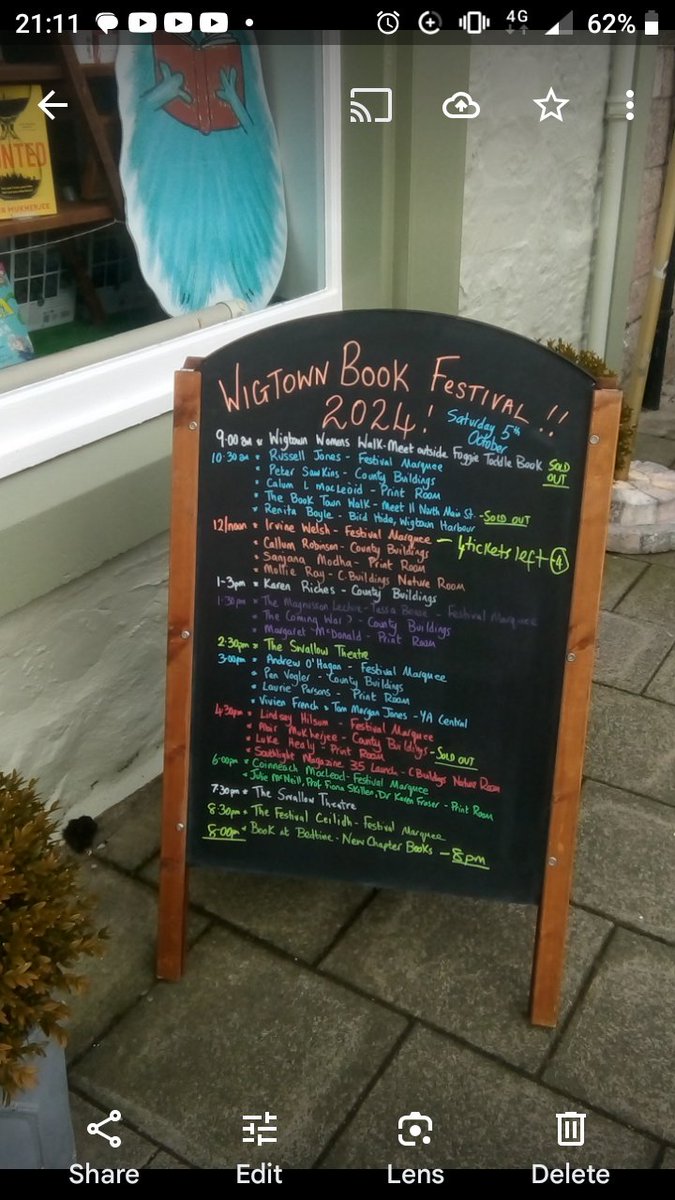 21:11
4G
62%
NTED
MUKHERJEE
WIGTOWN BOOK FESTIVAL !!
2024! Saturday 5th October
9.00am * Wigtown Womens Walk - Meet outside Foggie Toddle Book SOLD OUT
10:30am * Russell Jones - Festival Marquee
* Peter Sawkins - County Buildings
* Calum L MacLeoid - Print Room
* The Book Town Walk - Meet 11 North Main St.
* Renita Boyle - Bird Hide, Wigtown Harbour - SOLD OUT
12/noon * Irvine Welsh - Festival Marquee - 4 tickets left 4
* Callum Robinson - County Buildings
* Sanjana Modha - Print Room
* Mollie Ray - C.Buildings Nature Room
1-3pm * Karen Riches - County Buildings
1:30pm * The Magnusson Lecture - Tessa - Festival Marquee
* The Coming War? - County Buildings
* Margaret McDonald - Print Room
2:30pm * The Swallow Theatre
3:00pm * Andrew O'Hagan - Festival Marquee
* Pen Vogler - County Buildings
* Laurie Parsons - Print Room
* Vivien French + Tom Morgan Jones - YA Central
4:30pm * Lindsey Hilsum - Festival Marquee
* Abir Mukherjee - County Buildings - SOLD OUT
* Luke Healy - Print Room
* Southlight Magazine 35 Launch - C Buildings Nature Room
6:00pm * Coinneach MacLeod - Festival Marquee
* Julie McNeill, Prof Fiona Skillen, Dr Karen Fraser - Print Room
7:30pm * The Swallow Theatre
8:30pm * The Festival Ceilidh - Festival Marquee
8:00pm * Book at Bedtime - New Chapter Books - 8pm
Share
Edit
Lens
Delete